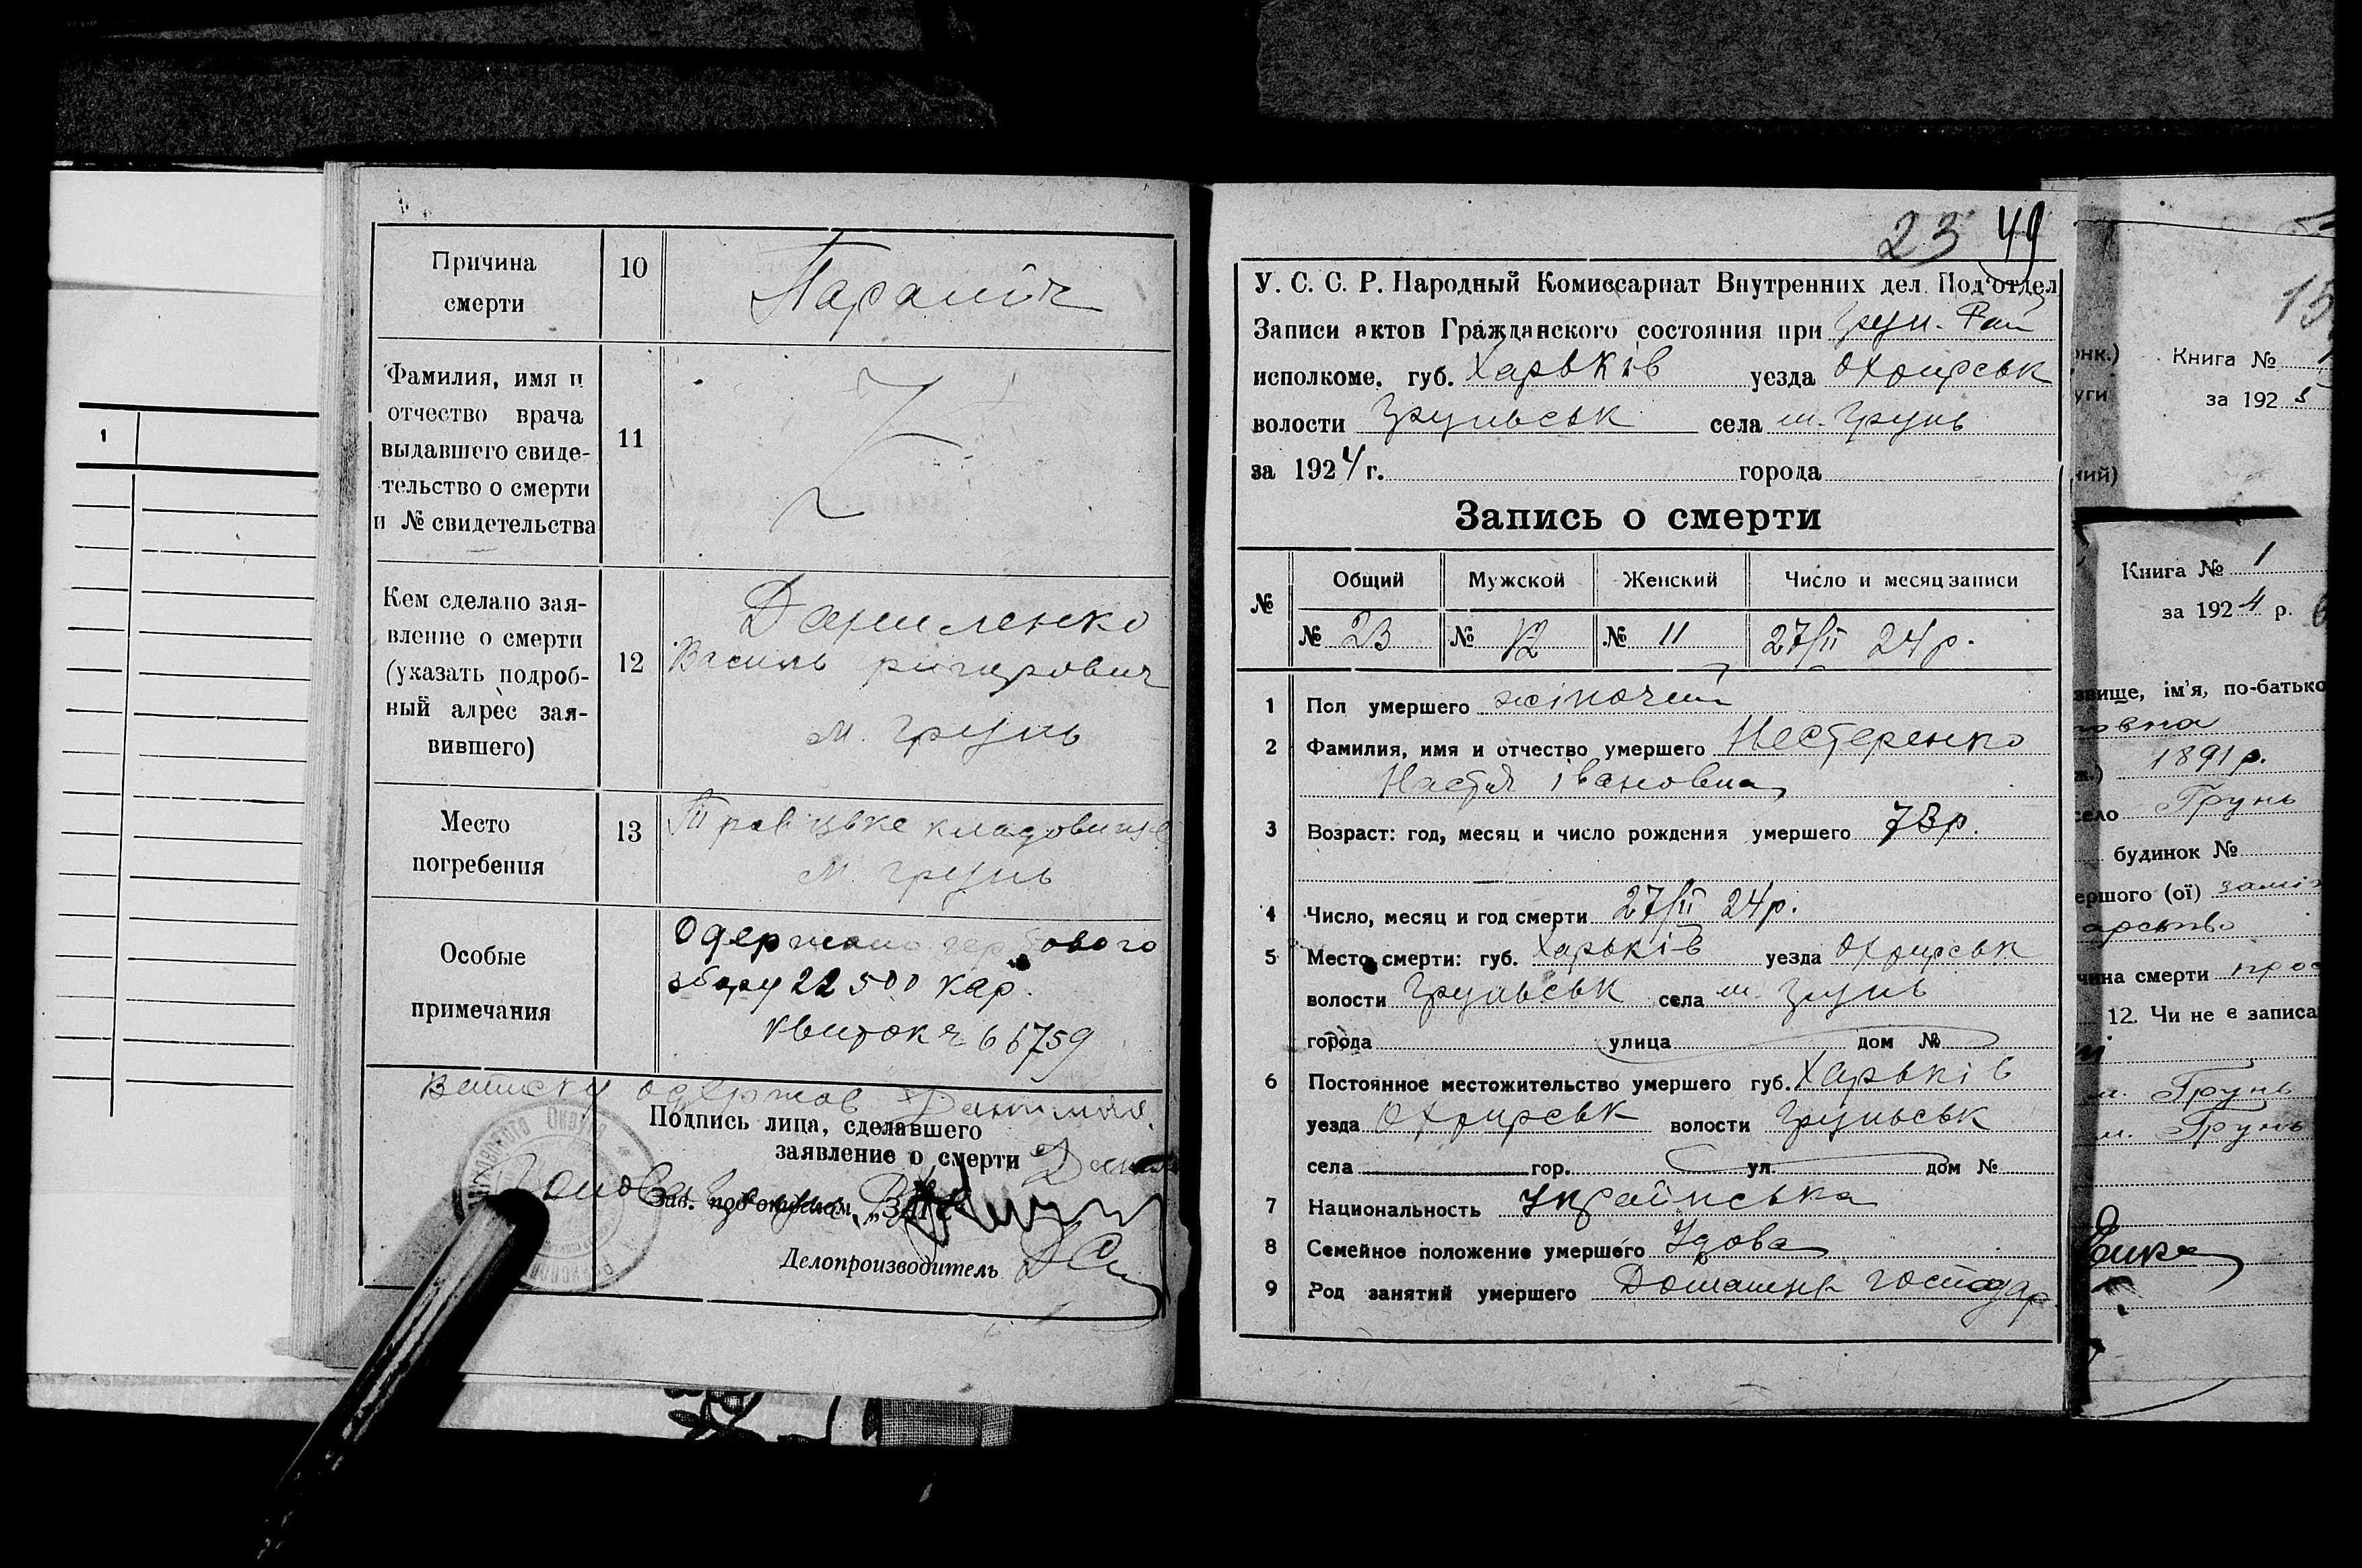 1
Причина
смерти
10
Параліч
Фамилия, имя и
отчество врача
выдавшего свиде-
тельство о смерти
и № свидетельства
11
Кем сделано зая-
вление о смерти
(указать подроб-
ный адрес зая-
вившего)
12
Даниленко
Василь
м. Грунь
Место
погребения
13
кладовище
м. Грунь
Особые
примечания
Одержано гербового
збору 22 500 кар.
квиток
Виписку одержав
Подпись лица, сделавшего
заявление о смерти
Зав. подотделом „ЗАГС
Делопроизводитель
23 49
У. С. С. Р. Народный Комиссариат Внутренних дел. Подотдел
Записи актов Гражданского состояния при Грун. Рай
исполкоме, губ. Харьків уезда Охтирськ
волости Груньськ села м. Грунь
за 1924 г. города
Запись о смерти
№ Общий Мужской Женский Число и месяц записи
№ 23 № 12 № 11 27/II 24 р.
1 Пол умершего жіночий
2 Фамилия, имя и отчество умершего Нестеренко
Настя івановна
3 Возраст: год, месяц и число рождения умершего 73 р.
4 Число, месяц и год смерти 27/II 24 р.
5 Место смерти: губ. Харьків уезда Охтирськ
волости Груньськ села м. Грунь
города улица дом №
6 Постоянное местожительство умершего губ. Харьків
уезда Охтирськ волости Груньськ
села гор. ул. дом №
7 Национальность Українська
8 Семейное положение умершего Удова
9 Род занятий умершего Домашнє господар.
Книга №
за 192
Книга № 1
за 1924 р.
звище, ім'я, по-батько
овна
1891 р.
село Грунь
будинок №
ершого (ої) заміж
арство
чина смерти
12. Чи не є записа
м. Грунь
м. Грунь